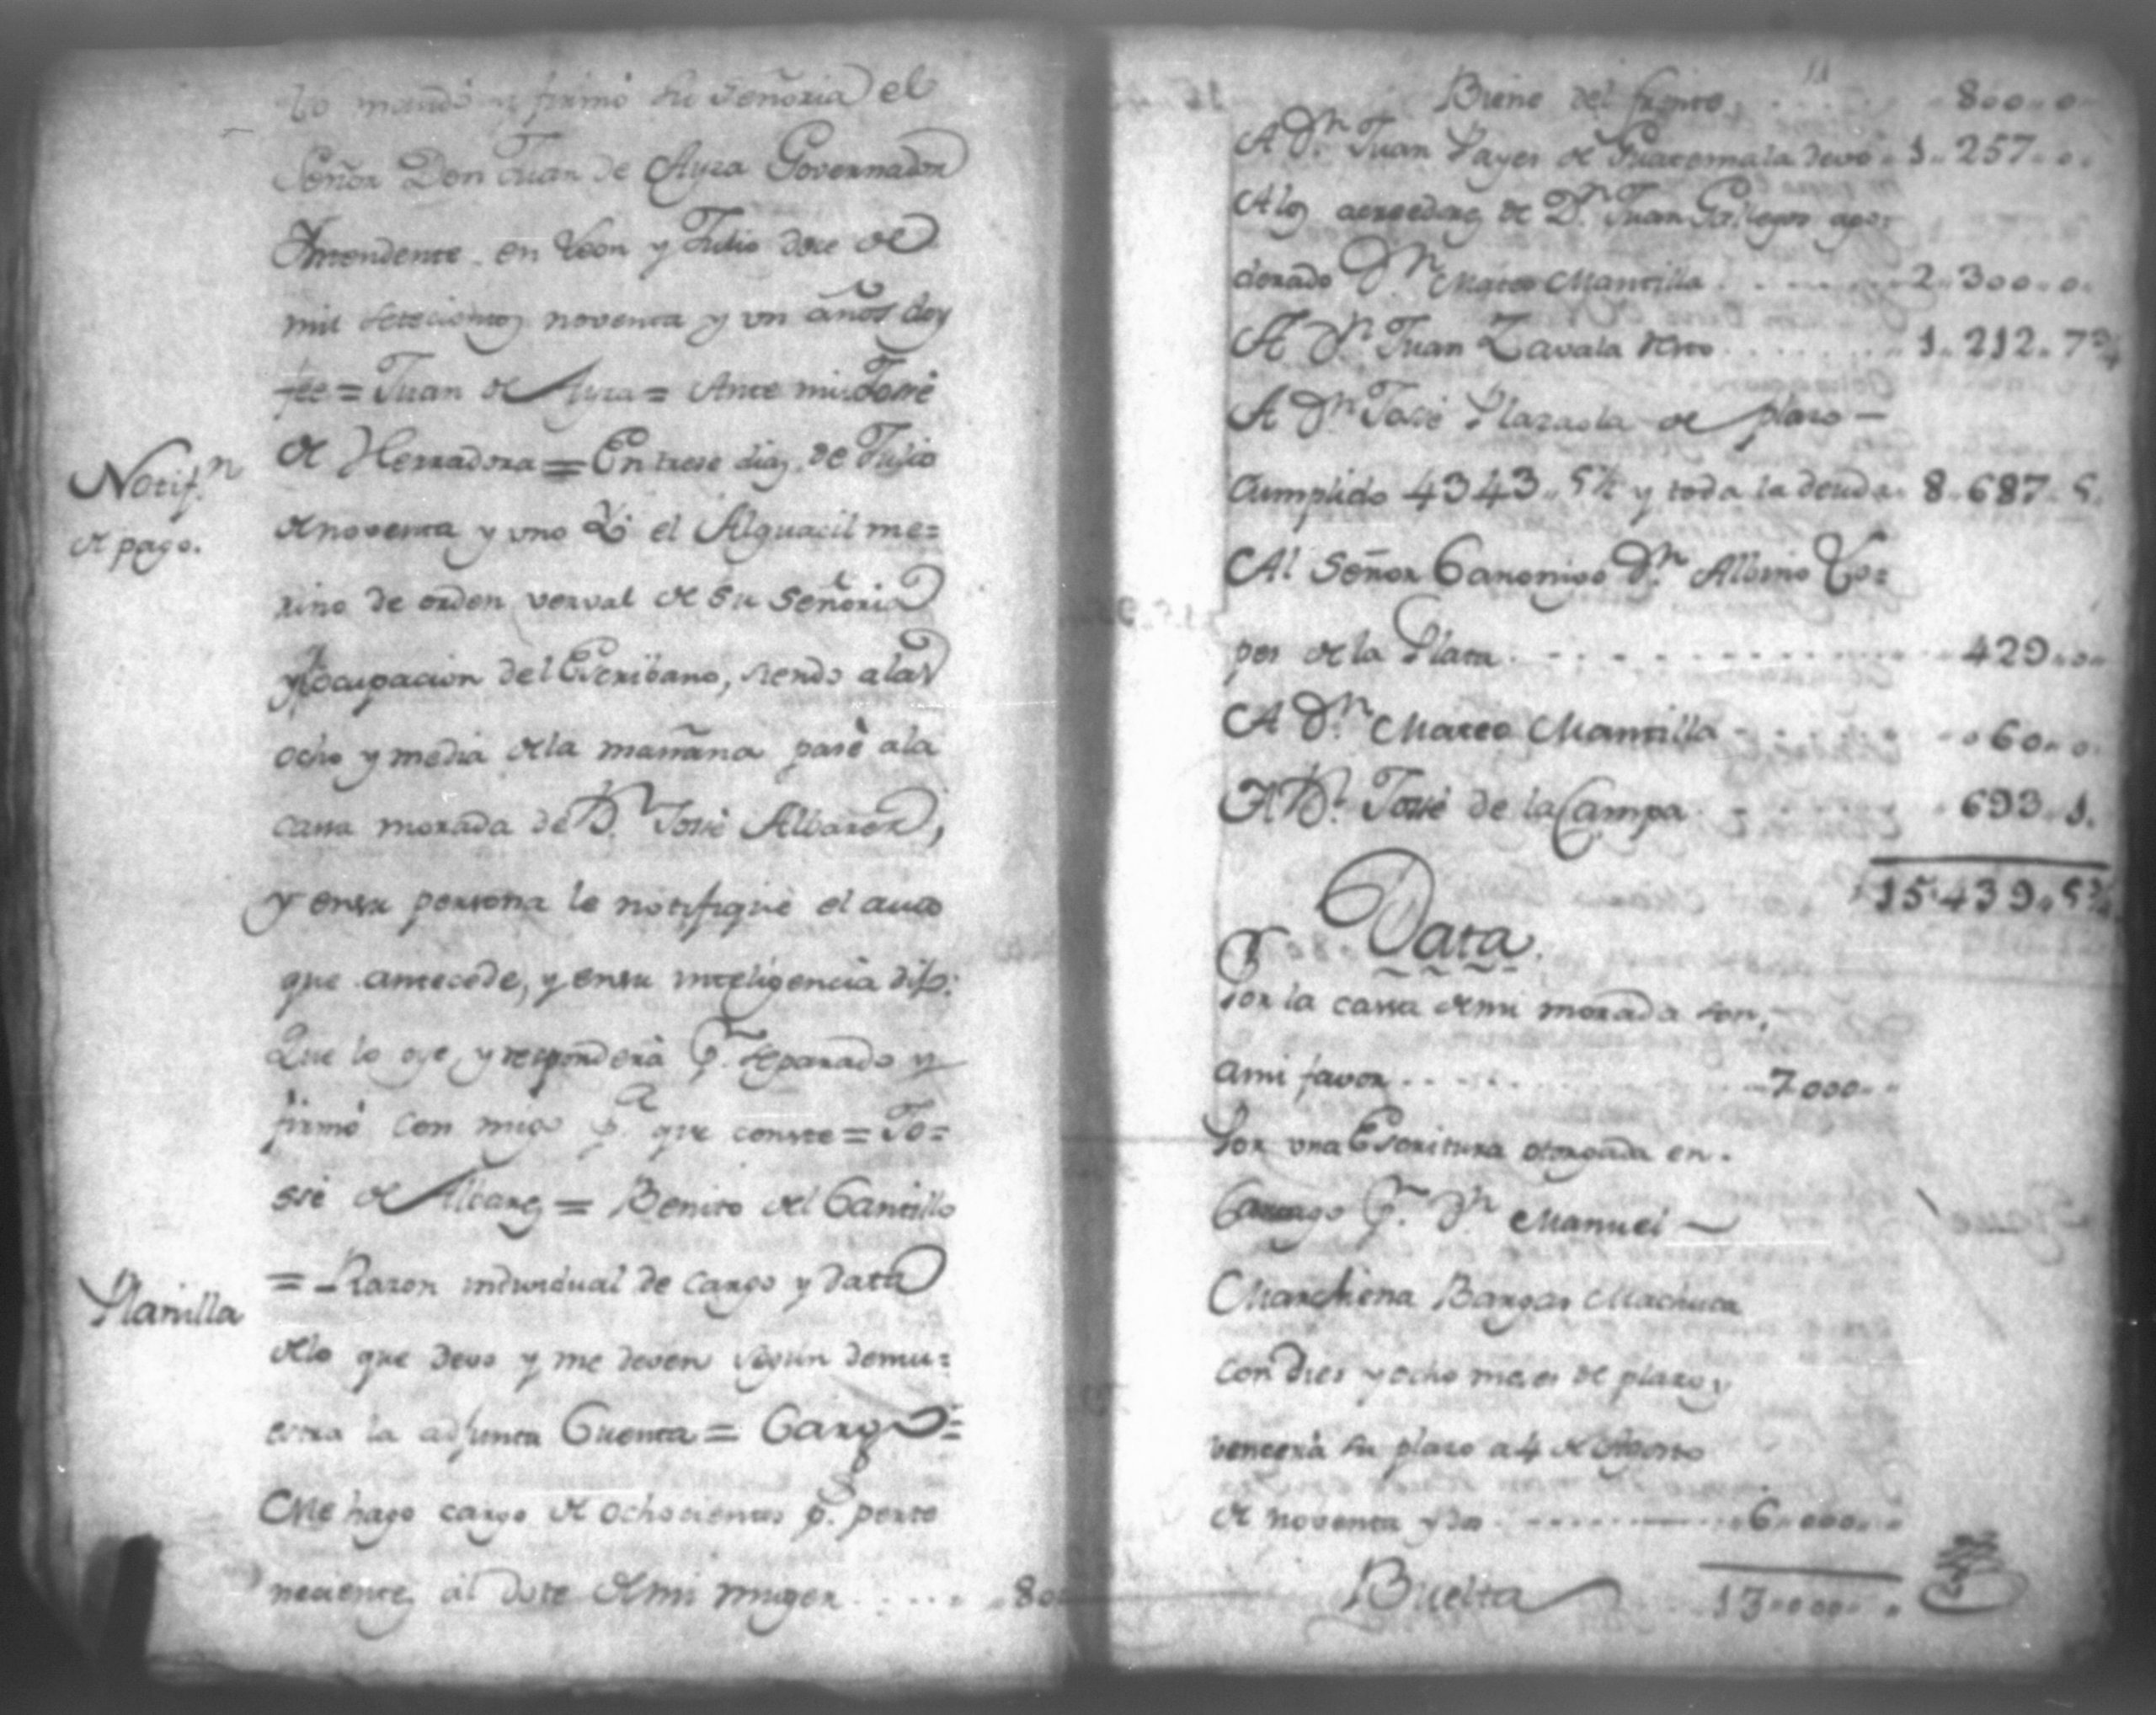 lo mandó y firmó su Señoria el
Señor Don Juan de Ayza Governador
Intendente en Leon y Julio doce de
mil setecientos noventa y un años doy
fee = Juan de Ayza = Ante mi Josse
de Herradora = En trese dias de Julio
Notif.n
de pago.
de noventa y uno Yo el Alguacil me=
rino de orden verval de su Señoria
y ocupacion del Escribano, siendo alas
ocho y media de la mañana pasè ala
cassa morada de D.n Josse Albares,
y ensu persona le notifiquè el auto
que antecede, y ensu inteligencia dijo:
Que lo oye, y responderà p.r separado y
firmó con migo p.a que conste = Jo=
ssè de Albares = Benito del Cantillo
Planilla
= Razon individual de cargo y data
de lo que devo y me deven segun demu=
estra la adjunta Cuenta = Cargo =
Me hago cargo de ochocientos p.s perte
neciente al dote de mi muger . . . . . . 80
11
Biene del frente, . . . . 800.. 0..
A D.n Juan Payes de Guatemala devo.. 1.. 257.. 0.
A los acreedores de D.n Juan Gallegos apo=
derado D.n Mateo Mantilla . . . . . 2.. 300.. 0.
A D.n Juan Zavala resto . . . . . 1.. 212.. 7 3/4
A D.n Josse Plazaola de plazo —
Cumplido 4343.. 5 1/2 y toda la deuda. 8.. 687.. 5.
Al Señor Canonigo D.n Albino Lo=
pes de la Plata . . . . . . . . . 429.. 0..
A D.n Mateo Mantilla . . . . . . . 0 60.. 0.
A D.n Josse de la Campa . . . . . 693.. 1.
15.439.. 5 3/4
Data.
Por la cassa de mi morada son,
ami favor . . . . . . . . 7000.. ..
Por una Escritura otorgada en.
Cartago p.r D.n Manuel —
Marchena Bargas Machuca
con dies y ocho meses de plazo,
vencerà su plazo a 4 de Agosto
de noventa y dos . . . . . . . 6..000.. ..
Buelta . . . 13..000.. ..